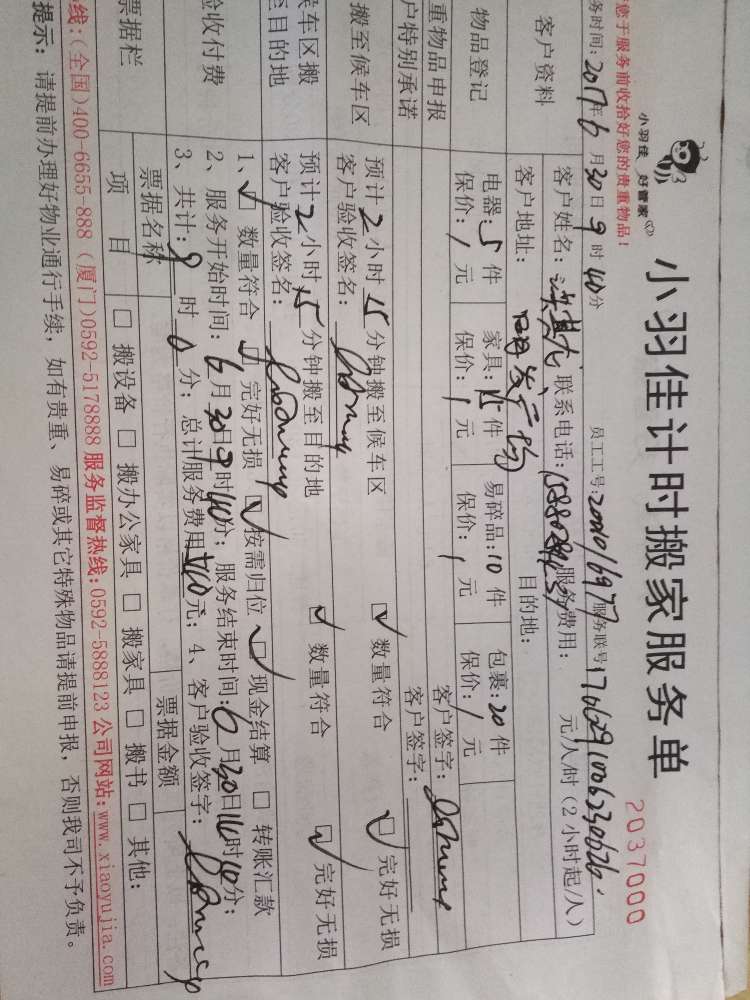 小羽佳 好管家
小羽佳计时搬家服务单
2037000
您于服务前收拾好您的贵重物品！
员工工号：
服务联号
务时间：2017年6月30日9时40分
客户资料
客户姓名：
联系电话：
服务费用： 元/人/时（2小时起/人）
客户地址：
目的地：
物品登记
电器：5件 家具：15件 易碎品：10件 包裹：20件
保价：/元 保价：/元 保价：/元 保价：/元
重物品申报
客户签字：
户特别承诺
客户签字：
搬至候车区
预计2小时15分钟搬至候车区 数量符合 完好无损
客户验收签名：
候车区搬
至目的地
预计2小时15分钟搬至目的地 数量符合 完好无损
客户验收签名：
验收付费
1、 数量符合 完好无损 按需归位 现金结算 转账汇款
2、服务开始时间：6月30日9时40分；服务结束时间：6月30日16时10分；
3、共计： 时0分；总计服务费用 元；4、客户验收签字：
票据栏
票据名称
票据金额
项目
搬设备 搬办公家具 搬家具 搬书 其他：
线：（全国）400-6655-888（厦门）0592-5178888 服务监督热线：0592-5888123 公司网站：www.xiaoyujia.com
提示：请提前办理好物业通行手续，如有贵重、易碎或其它特殊物品请提前申报，否则我司不予负责。